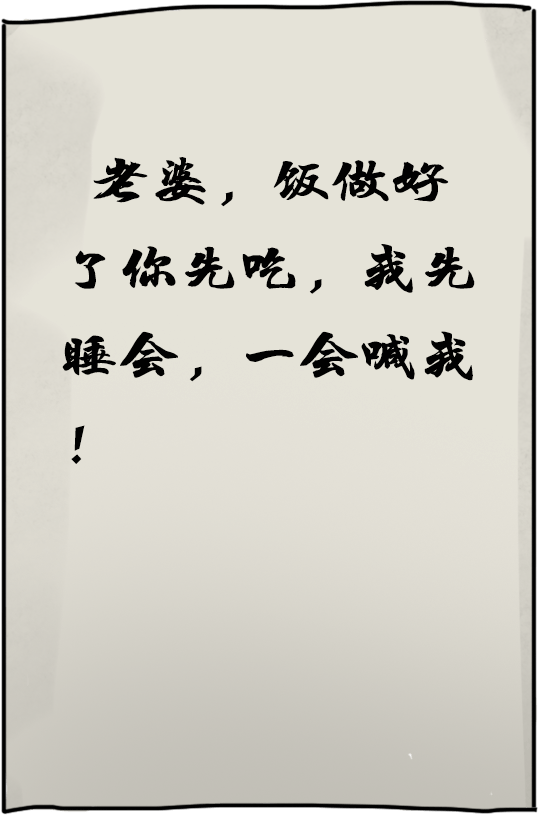 老婆，饭做好
了你先吃，我先
睡会，一会喊我
！